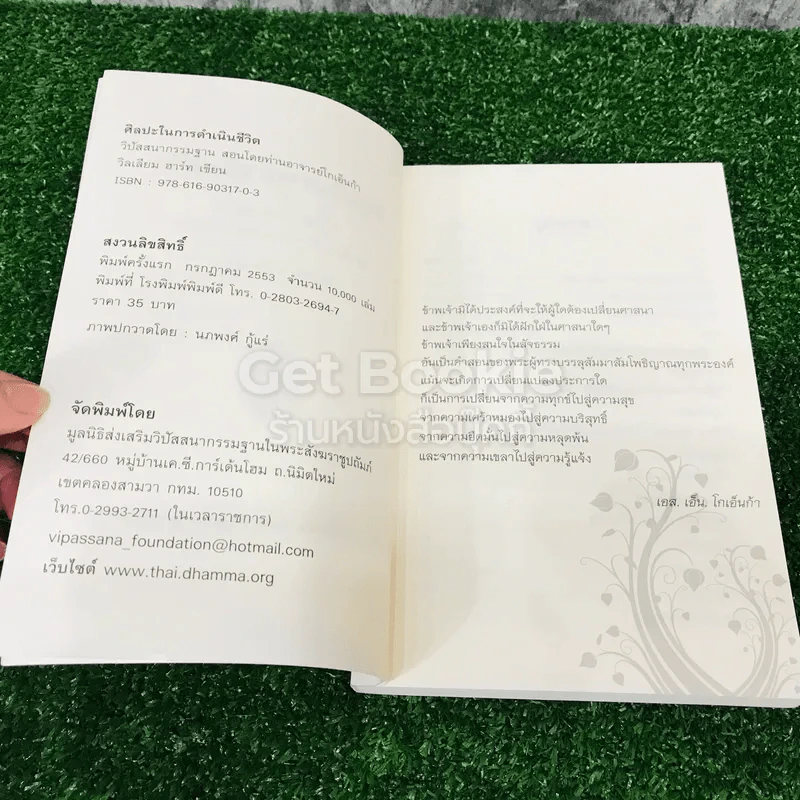 ศิลปะในการดำเนินชีวิต
วิปัสสนากรรมฐาน สอนโดยท่านอาจารย์โกเอ็นก้า
วิลเลียม ฮาร์ท เขียน
ISBN : 978-616-90317-0-3
สงวนลิขสิทธิ์
พิมพ์ครั้งแรก กรกฎาคม 2553 จำนวน 10,000 เล่ม
พิมพ์ที่ โรงพิมพ์พิมพ์ดี โทร. 0-2803-2694-7
ราคา 35 บาท
ภาพปกวาดโดย : นภพงศ์ กู้แร่
จัดพิมพ์โดย
มูลนิธิส่งเสริมวิปัสสนากรรมฐานในพระสังฆราชูปถัมภ์
42/660 หมู่บ้านเค.ซี.การ์เด้นโฮม ถ.นิมิตใหม่
เขตคลองสามวา กทม. 10510
โทร.0-2993-2711 (ในเวลาราชการ)
vipassana_foundation@hotmail.com
เว็บไซต์ www.thai.dhamma.org
ข้าพเจ้ามิได้ประสงค์ที่จะให้ผู้ใดต้องเปลี่ยนศาสนา
และข้าพเจ้าเองก็มิได้ฝักใฝ่ในศาสนาใดๆ
ข้าพเจ้าเพียงสนใจในสัจธรรม
อันเป็นคำสอนของพระผู้ทรงบรรลุสัมมาสัมโพธิญาณทุกพระองค์
แม้นจะเกิดการเปลี่ยนแปลงประการใด
ก็เป็นการเปลี่ยนจากความทุกข์ไปสู่ความสุข
จากความเศร้าหมองไปสู่ความบริสุทธิ์
จากความยึดมั่นไปสู่ความหลุดพ้น
และจากความเขลาไปสู่ความรู้แจ้ง
เอส. เอ็น. โกเอ็นก้า
Get Bookie
ร้านหนังสือเก็ท